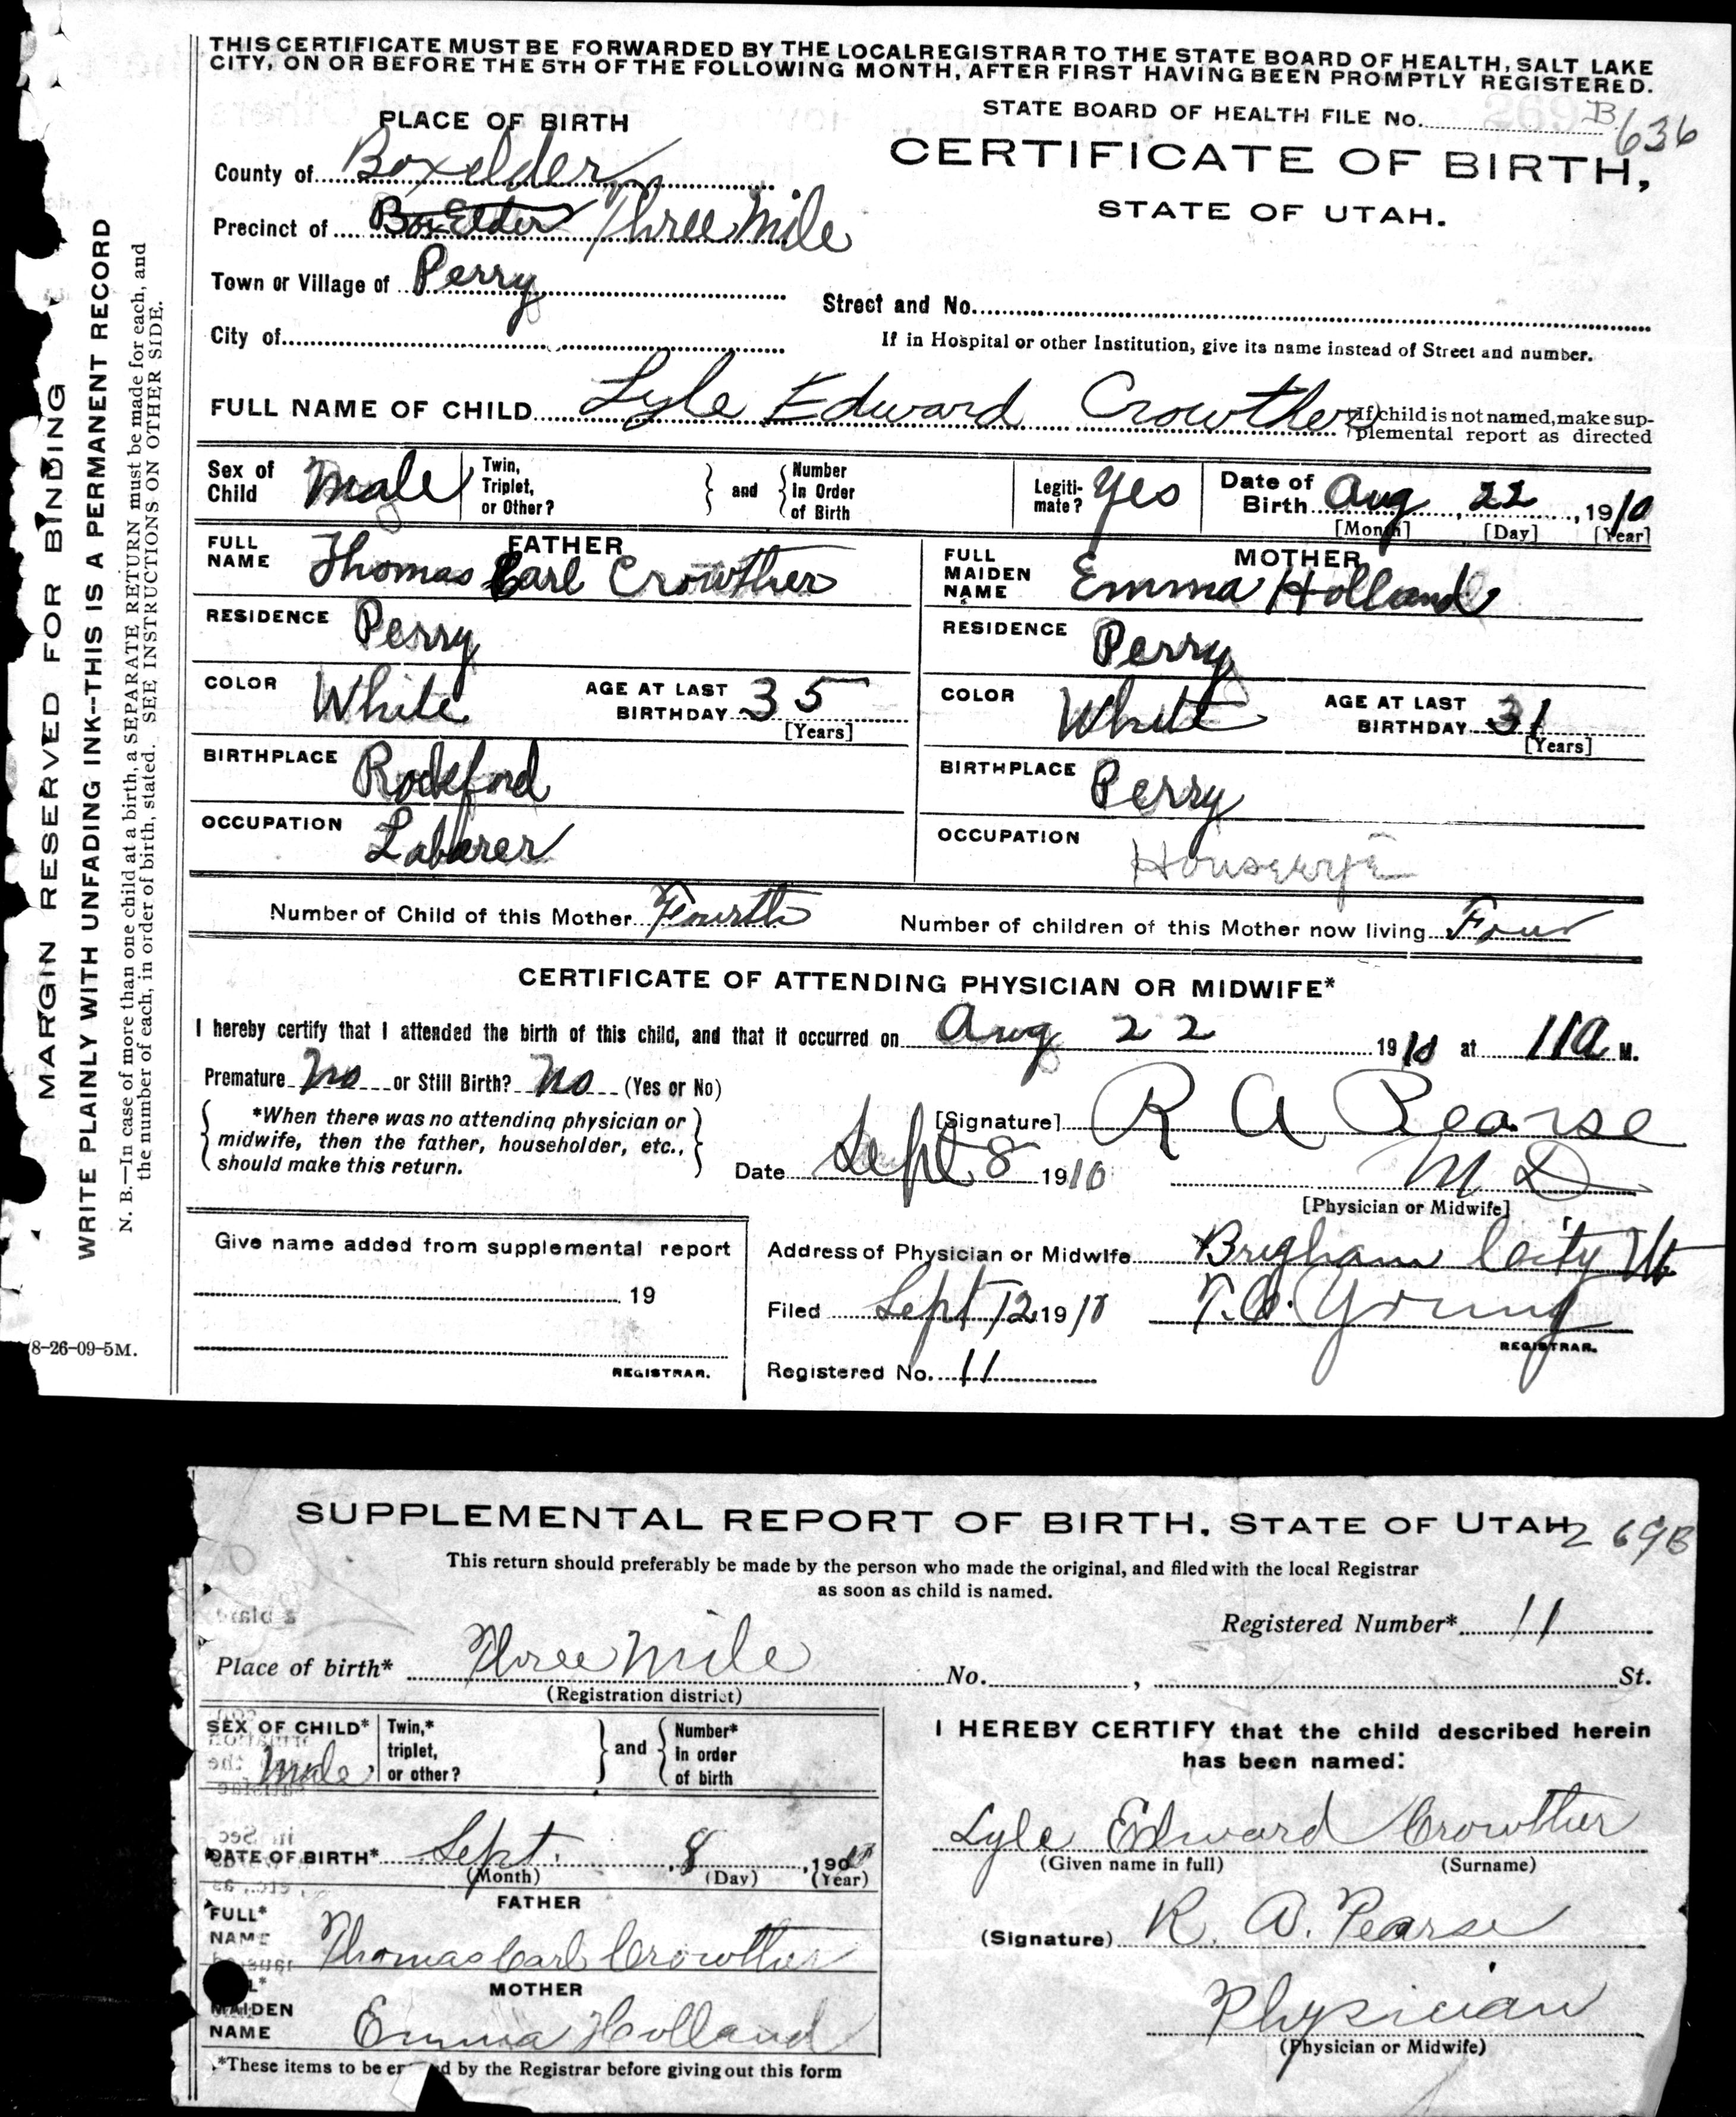 THIS CERTIFICATE MUST BE FORWARDED BY THE LOCAL REGISTRAR TO THE STATE BOARD OF HEALTH, SALT LAKE
CITY, ON OR BEFORE THE 5TH OF THE FOLLOWING MONTH, AFTER FIRST HAVING BEEN PROMPTLY REGISTERED.
STATE BOARD OF HEALTH FILE No. B 636
PLACE OF BIRTH
CERTIFICATE OF BIRTH,
STATE OF UTAH.
County of Boxelder
Precinct of Box Elder Three Mile
Town or Village of Perry
Street and No.
City of
If in Hospital or other Institution, give its name instead of Street and number.
FULL NAME OF CHILD Lyle Edward Crowther
If child is not named, make sup-
plemental report as directed
Sex of Child Male
Twin, Triplet, or Other?
and
Number In Order of Birth
Legiti-mate? Yes
Date of Birth Aug 22, 1910
[Month] [Day] [Year]
FATHER
FULL NAME Thomas Carl Crowther
RESIDENCE Perry
COLOR White
AGE AT LAST BIRTHDAY 35
[Years]
BIRTHPLACE
OCCUPATION Laborer
MOTHER
FULL MAIDEN NAME Emma Holland
RESIDENCE Perry
COLOR White
AGE AT LAST BIRTHDAY 31
[Years]
BIRTHPLACE Perry
OCCUPATION Housewife
Number of Child of this Mother Fourth
Number of children of this Mother now living Four
CERTIFICATE OF ATTENDING PHYSICIAN OR MIDWIFE*
I hereby certify that I attended the birth of this child, and that it occurred on Aug 22 1910 at 11 a M.
Premature no or Still Birth? no (Yes or No)
*When there was no attending physician or
midwife, then the father, householder, etc.,
should make this return.
[Signature] R A Pearse
M D
[Physician or Midwife]
Date Sept 8 1910
Give name added from supplemental report
19
REGISTRAR.
Address of Physician or Midwife Brigham City Ut
Filed Sept 12 1910
Young
REGISTRAR.
Registered No. 11
MARGIN RESERVED FOR BINDING
WRITE PLAINLY WITH UNFADING INK--THIS IS A PERMANENT RECORD
N. B.—In case of more than one child at a birth, a SEPARATE RETURN must be made for each, and
the number of each, in order of birth, stated. SEE INSTRUCTIONS ON OTHER SIDE.
8-26-09-5M.
SUPPLEMENTAL REPORT OF BIRTH, STATE OF UTAH
269B
This return should preferably be made by the person who made the original, and filed with the local Registrar
as soon as child is named.
Registered Number* 11
Place of birth* Three Mile No. , St.
(Registration district)
SEX OF CHILD* Male
Twin,* triplet, or other?
and
Number* In order of birth
DATE OF BIRTH* Sept. 8, 1910
(Month) (Day) (Year)
FATHER
FULL* NAME Thomas Carl Crowther
MOTHER
MAIDEN NAME Emma Holland
*These items to be er d by the Registrar before giving out this form
I HEREBY CERTIFY that the child described herein
has been named:
Lyle Edward Crowther
(Given name in full) (Surname)
(Signature) R. A. Pearse
Physician
(Physician or Midwife)